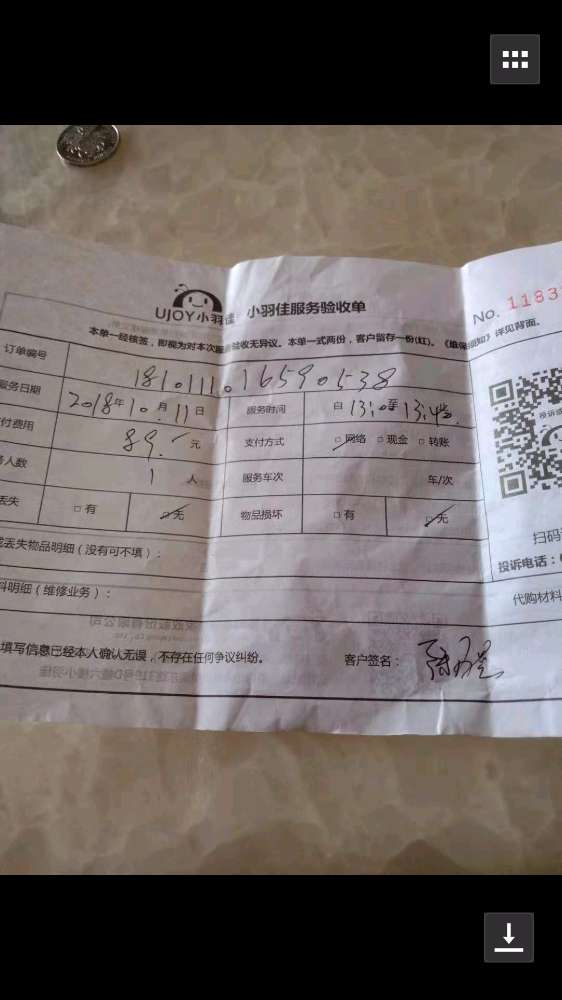 UJOY小羽佳 小羽佳服务验收单
No. 1183
本单一经核签，即视为对本次服务验收无异议。本单一式两份，客户留存一份(红)。《维保须知》详见背面。
订单编号 1810111016590538
服务日期 2018年10月11日 服务时间 自13:00至13:45
付费用 89.-元 支付方式 □网络 □现金 □转账
务人数 1人 服务车次 车/次
丢失 □有 □无 物品损坏 □有 □无
或丢失物品明细（没有可不填）：
扫码
投诉电话：
料明细（维修业务）：
代购材料
填写信息已经本人确认无误，不存在任何争议纠纷。 客户签名：